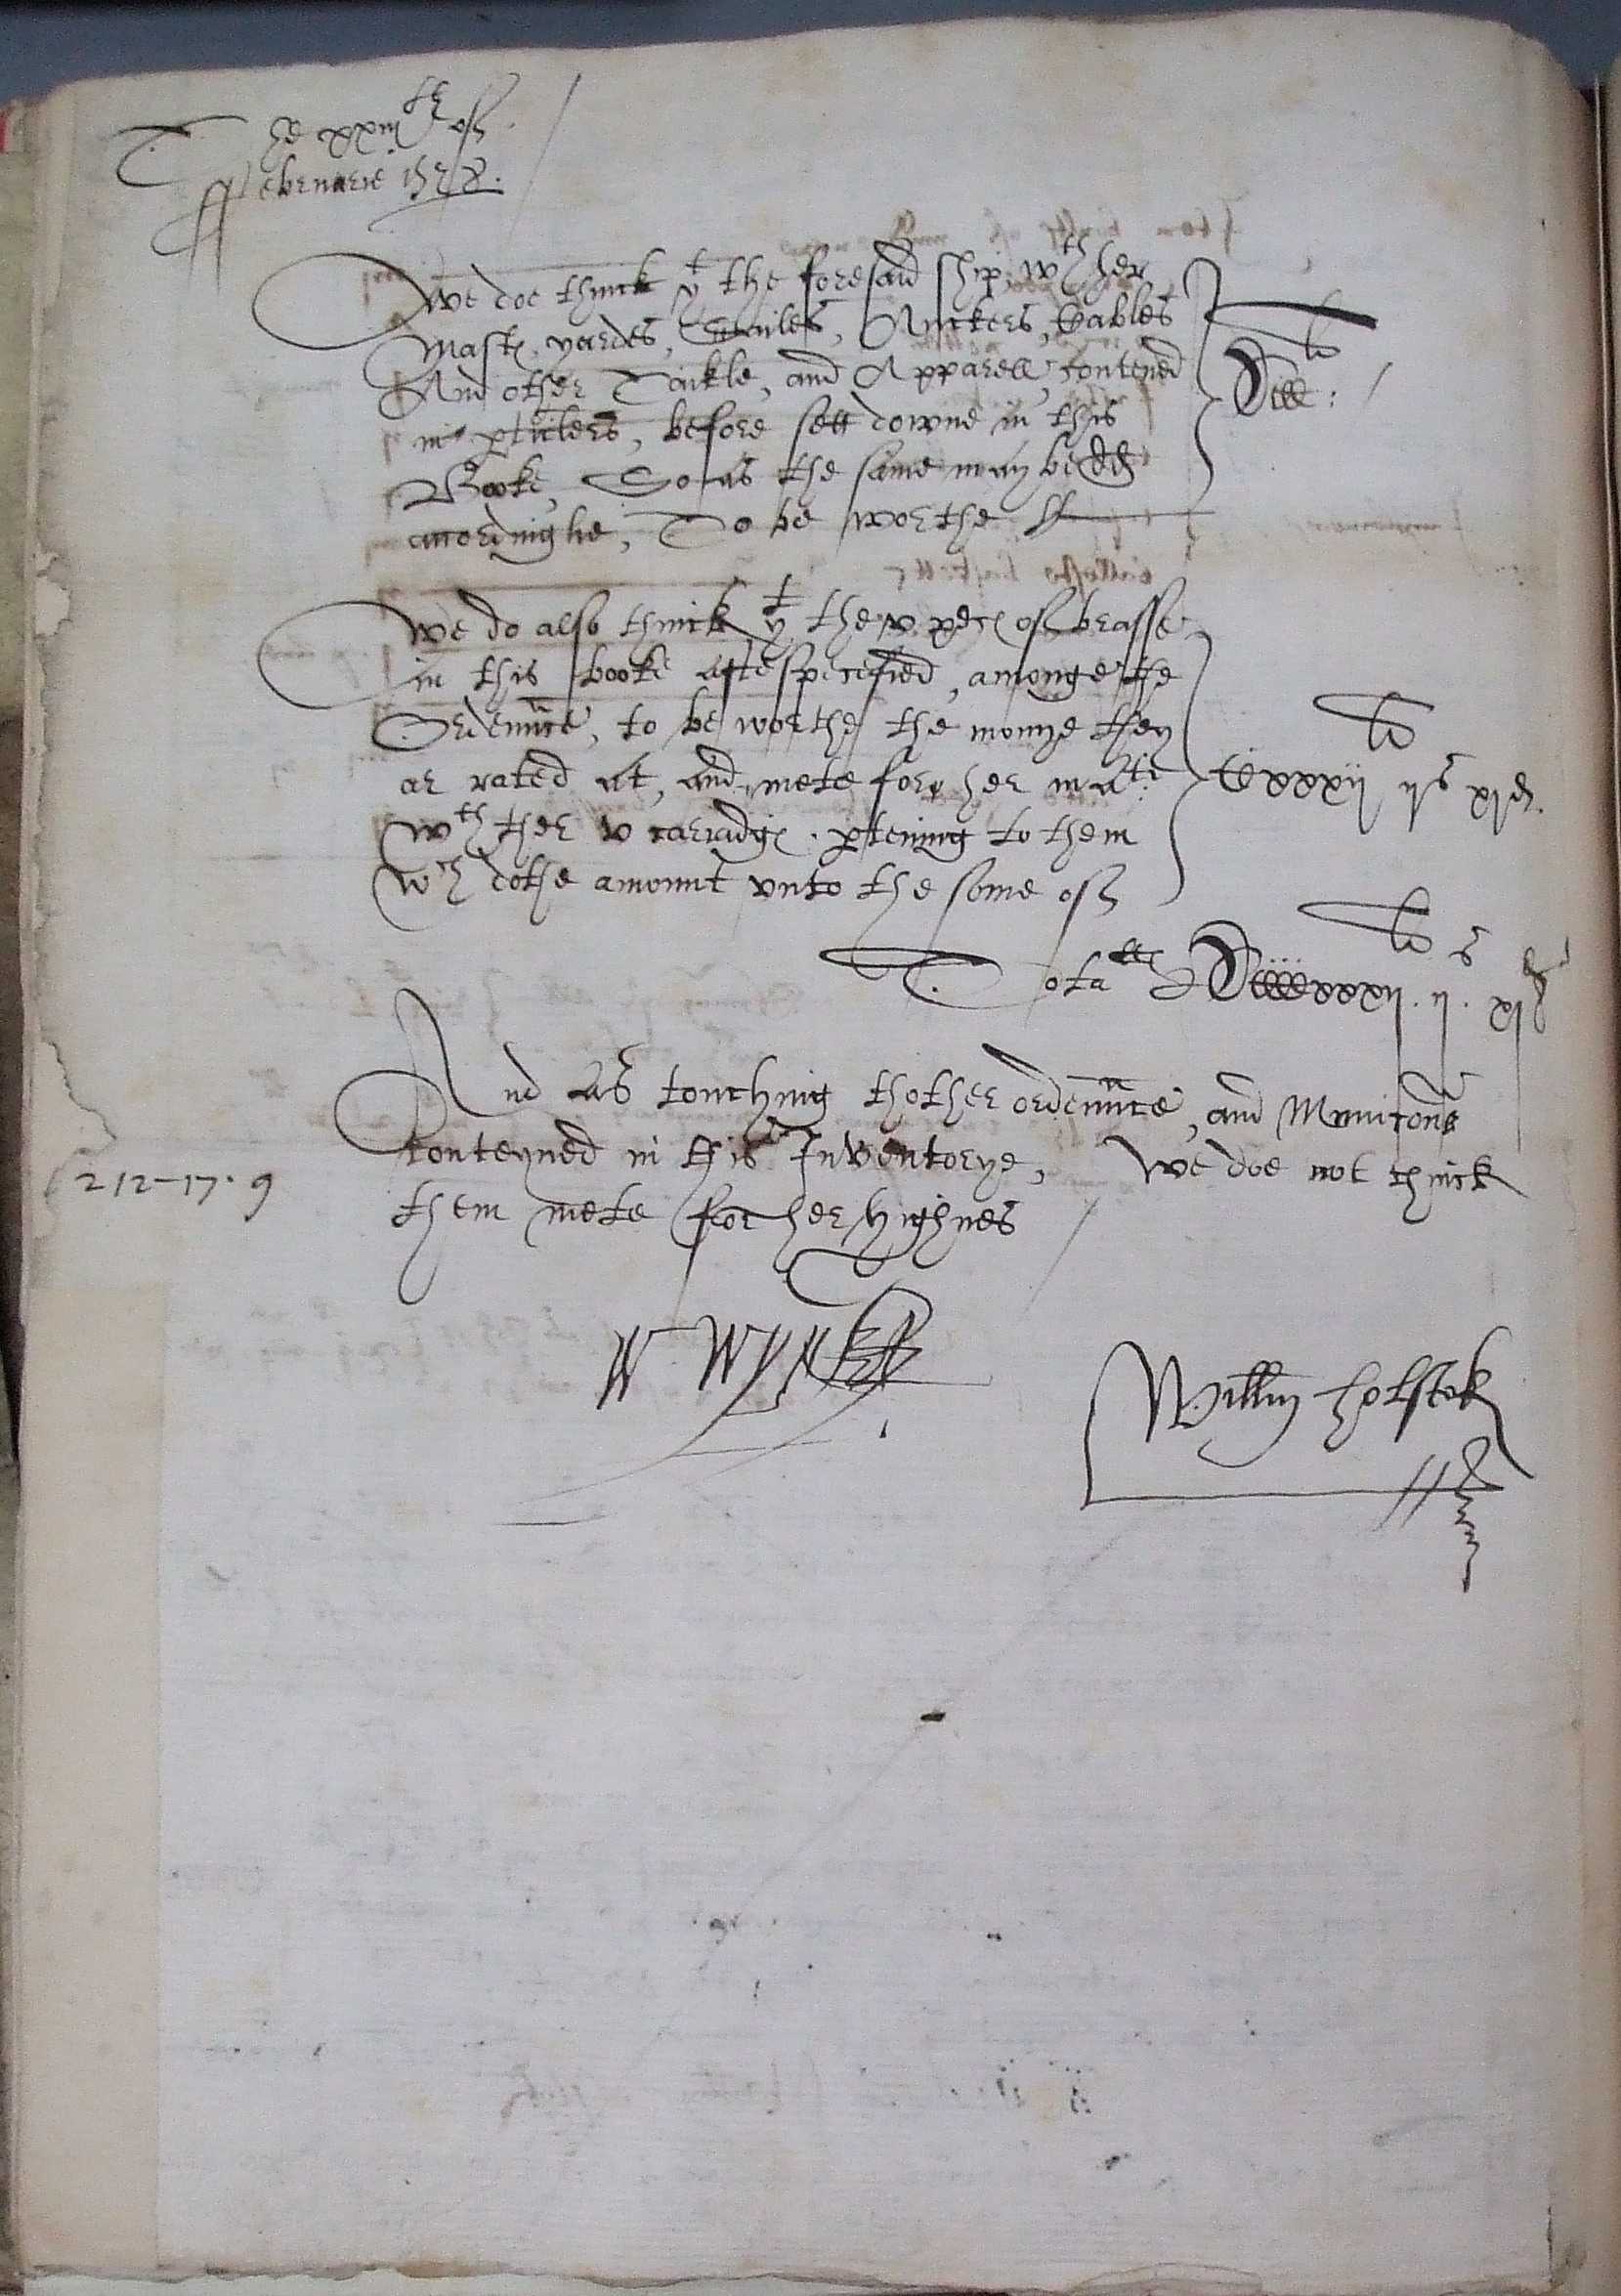 The xxiiijth of
ffebruarie 1578.
We doe thinck yt the foresaid ship wth her
Mastes yardes, Sailes, Anckers, Cables
And other Tackle, and Apparell, contened
in pticlers, before sett downe in this
Booke, So as the same may be dd
accordinglie, To be worthe
li
Diiic:
We do also thinck yt the v peces of brasse
in this booke afte specefied, amonge the
Ordennce, to be worthe the monye they
ar rated at, and mete for her matie
wth ther v carriadges pteining to them
wch dothe amount unto the some of
li
Cxxxij ijs xjd.
li s d
Totall Diiiicxxxij. ij. xj
And As touching thother ordennce, and Municons
Conteyned in this Inventorye, We doe not thinck
them mete for her highnes
212-17.9
W Wynter
Willm holstok